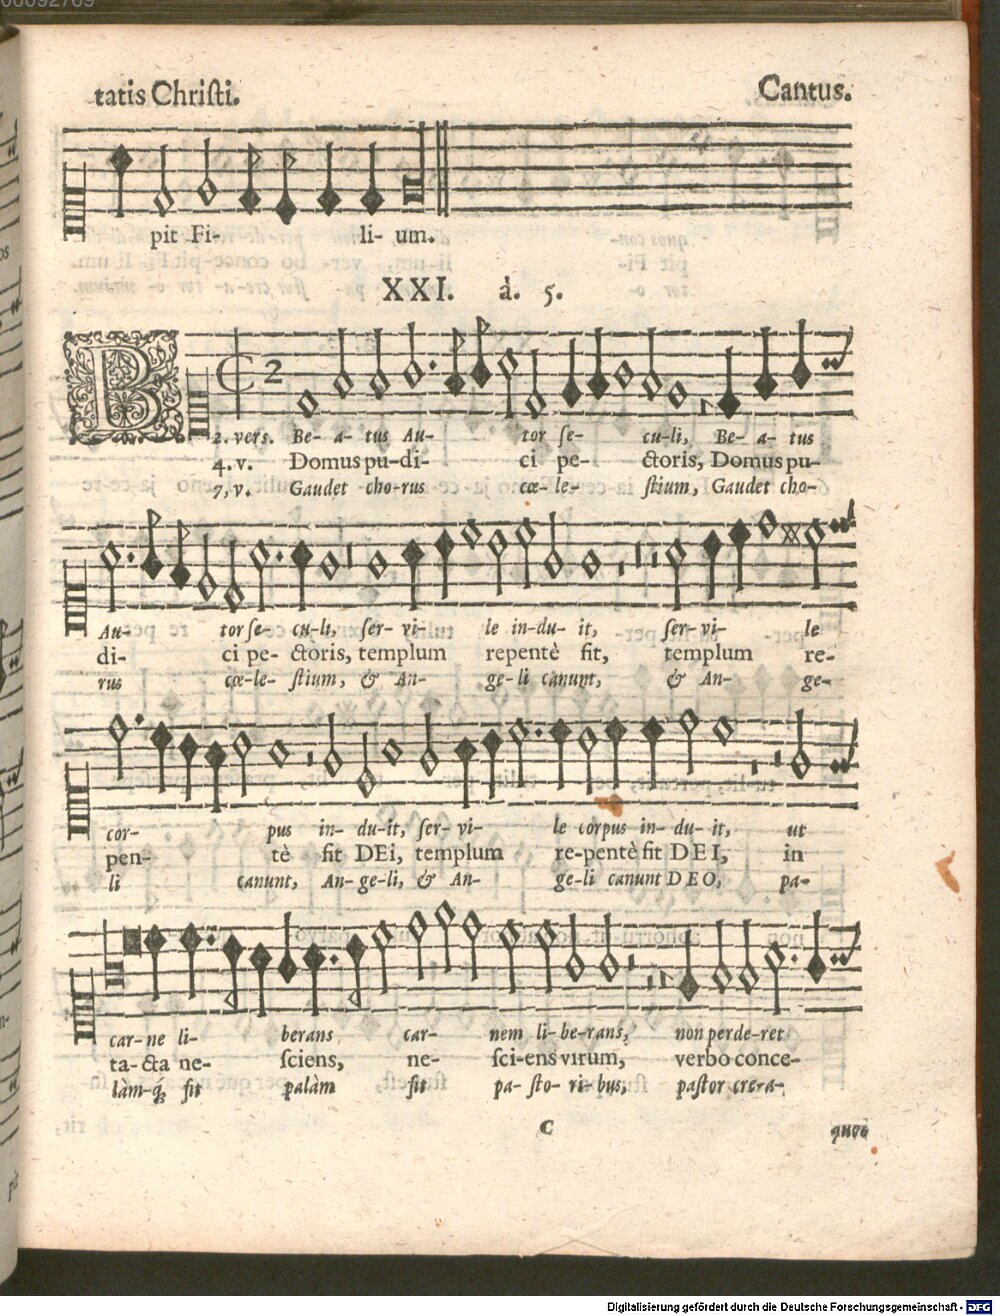 tatis Chriſti.
Cantus.
pit Fi- li- um.
XXI. à. 5.
B
2. verſ. Be- a- tus Au- tor ſe- cu-li, Be- a- tus
4. v. Domus pu-di- ci pe- ctoris, Domus pu-
7, v. Gaudet cho-rus cœ-le- ſtium, Gaudet cho-
Au- tor ſe- cu-li, ſer- vi- le in-du- it, ſer- vi- le
di- ci pe- ctoris, templum repentè fit, templum re-
rus cœ-le- ſtium, & An- ge-li canunt, & An- ge-
cor- pus in- du-it, ſer- vi- le corpus in- du- it, ut
pen- tè fit DEi, templum re-pentè fit DEI, in
li canunt, An- ge-li, & An- ge-li canunt DEO, pa-
car-ne li- berans car- nem li-be-rans, non perde-ret
ta-cta ne- ſciens, ne- ſci-ens virum, verbo conce-
làm-q́; fit palàm fit pa-ſto-ri-bus, paſtor crea-
C
quos
Digitalisierung gefördert durch die Deutsche Forschungsgemeinschaft - DFG